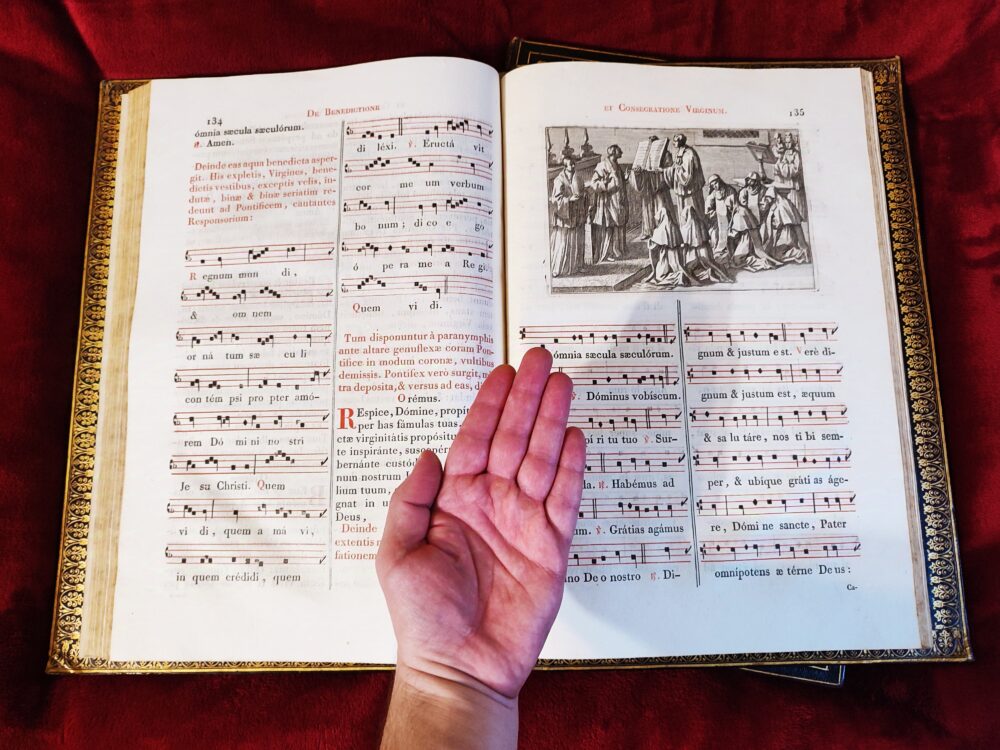 134
De Benedictione
ómnia sæcula sæculórum.
℟. Amen.
Deinde eas aqua benedicta asper-
git. His expletis, Virgines, bene-
dictis vestibus, exceptis velis, in-
dutæ, binæ & binæ seriatim re-
deunt ad Pontificem, cantantes
Responsorium:
Regnum mun di,
& om nem
or ná tum sæ cu li
con tém psi pro pter amó-
rem Dó mi ni no stri
Je su Christi. Quem
vi di, quem a má vi,
in quem crédidi, quem
di léxi. ℣. Eructá vit
cor me um verbum
bo num; dico e go
ó pe ra me a Re gi.
Quem vi di.
Tum disponuntur à paranymphis
ante altare genuflexæ coram Pon-
tifice in modum coronæ, vultibus
demissis. Pontifex verò surgit,
tra deposita, & versus ad eas,
Orémus.
Respice, Dómine,
per has fámulas tuas.
ctæ virginitátis
te inspiránte,
bernánte
num nostrum
lium tuum,
gnat in
Deus,
Deinde
extentis
fationem
et Consecratione Virginum.
135
ómnia sæcula sæculórum.
℣. Dóminus vobíscum.
ri tu tuo ℣. Sur-
℟. Habémus ad
℣. Grátias agámus
De o nostro ℟. Di-
gnum & justum est. Verè di-
gnum & justum est, æquum
& sa lu táre, nos ti bi sem-
per, & ubique gráti as áge-
re, Dómi ne sancte, Pater
omnípotens æ térne De us:
Ca-